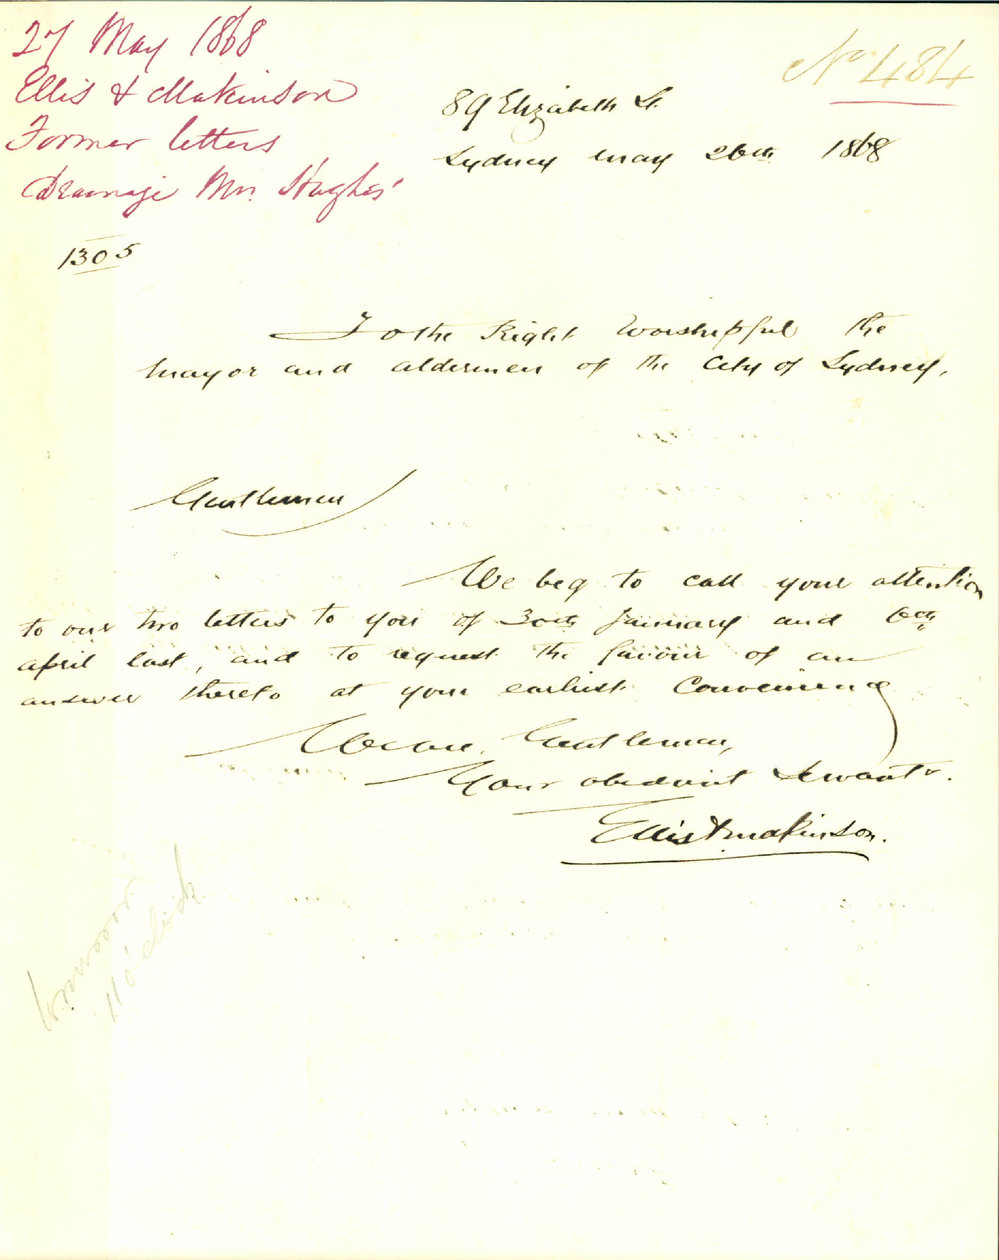 27 May 1868
Ellis & Makinson
Former letters
Drainage Mrs. Hughes'
No. 484
89 Elizabeth St.
Sydney May 26th 1868
1305
To the Right Worshipful the
Mayor and Aldermen of the City of Sydney.
Gentlemen
We beg to call your attention
to our two letters to you of 30th January and 6th
April last, and to request the favour of an
answer thereto at your earliest convenience
We are, Gentlemen,
Your obedient Servants.
Ellis & Makinson.
tomorrow
11 o'clock